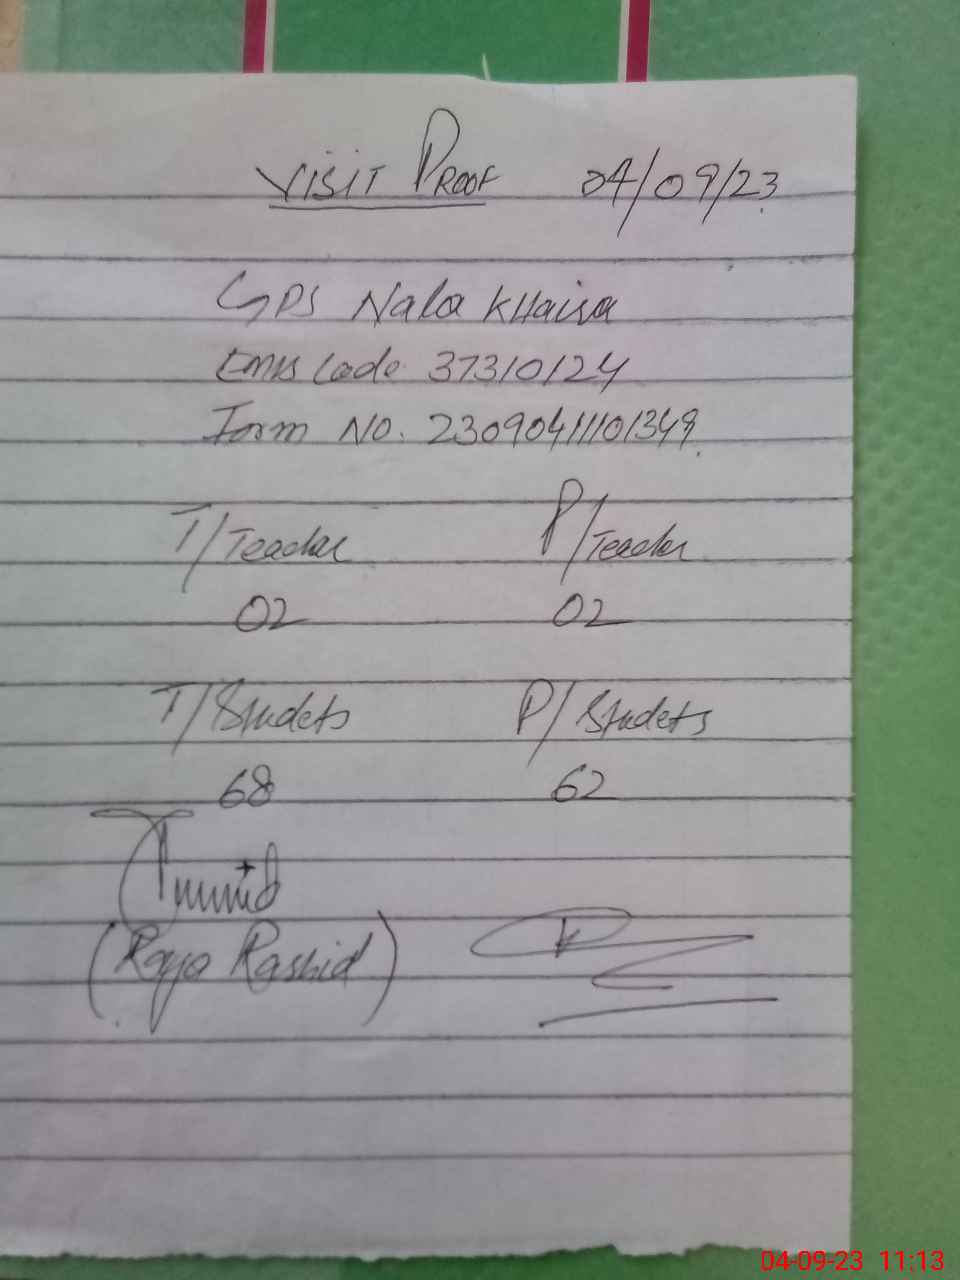 VISIT PROOF 04/09/23
GPS Nala Khaisa
Emis Code 37310124
Form No. 23090411101349
T/Teacher P/Teacher
02 02
T/Studets P/Studets
68 62
(Raja Rashid)
04-09-23 11:13